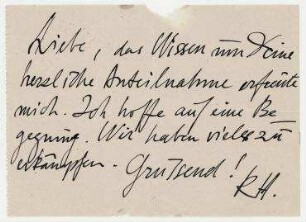 Liebe, das Wissen um Deine
herzliche Anteilnahme erfreute
mich. Ich hoffe auf eine Be
gegnung. Wir haben vieles zu
erkämpfen. Grüssend!
RH.